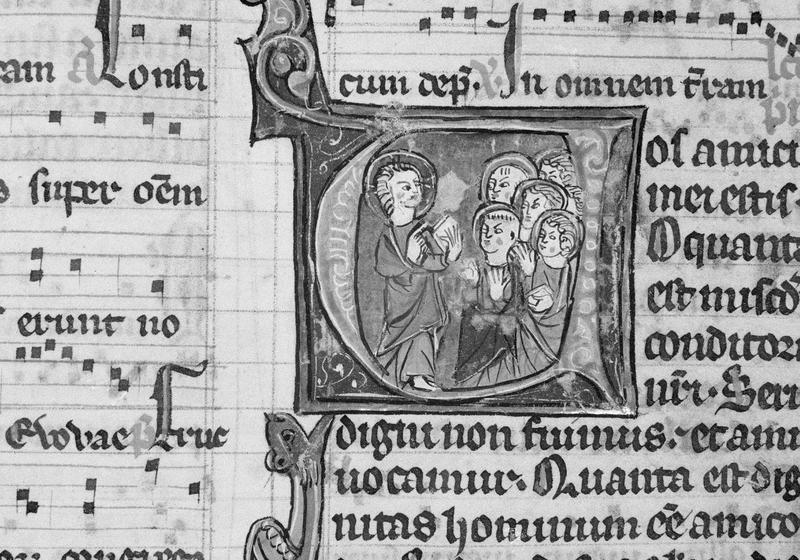 ram Consti
super oēm
erunt no
Evovae
cum dep̄. In omnem t̄ram
os amici
mei estis.
O quanta
est
conditori
nr̄i. Ser
digni non fuimus. et ami
uocamur. Quanta est dig
nitas hominum eē amico